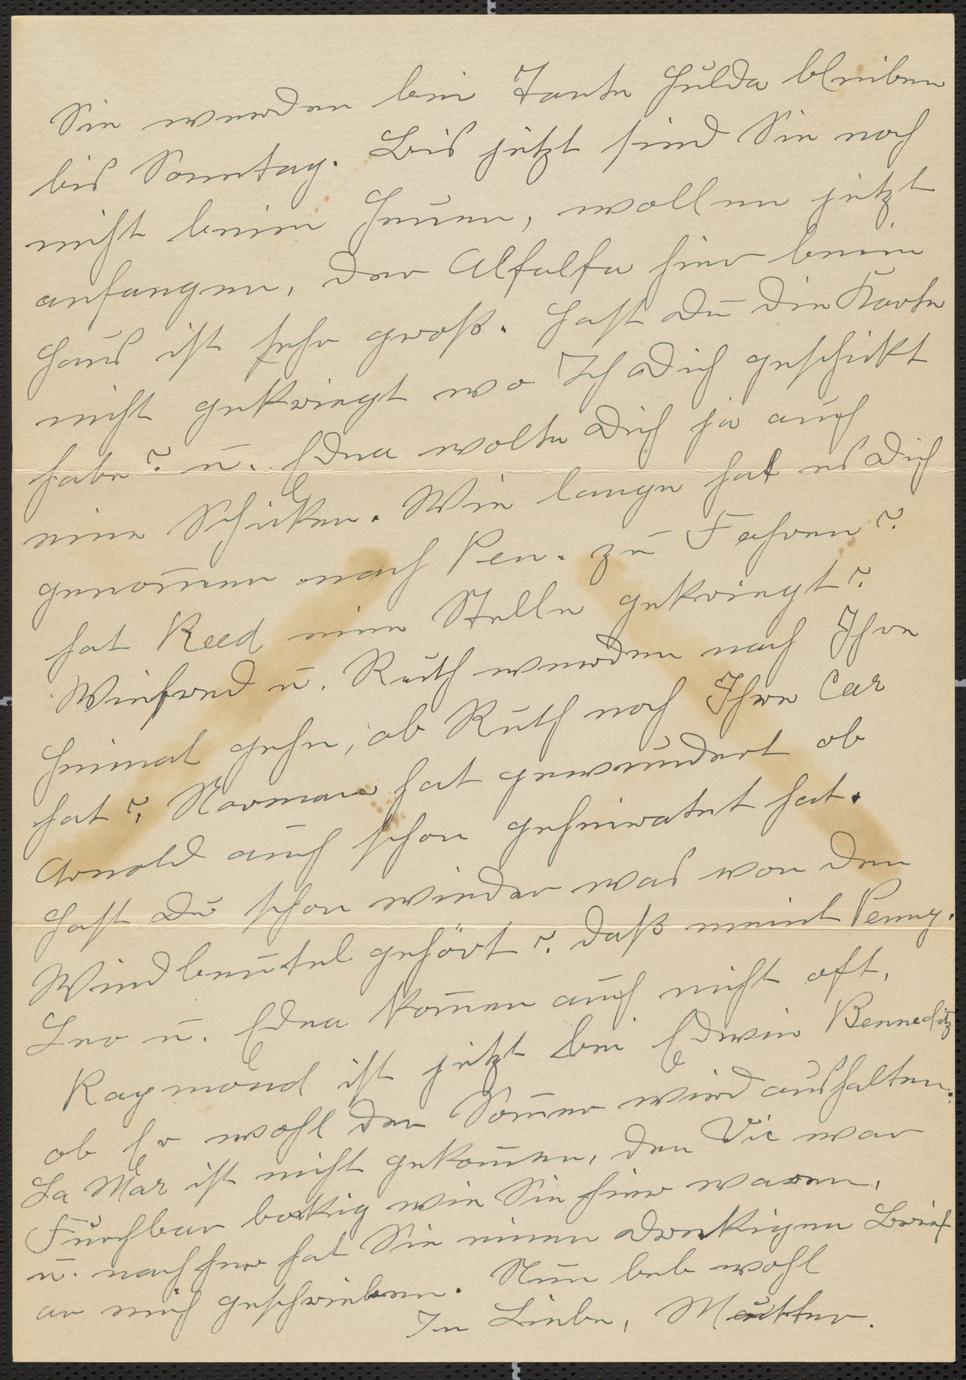 Sie werden bei Tante Hulda bleiben
bis Sonntag. Bis jetzt sind Sie noch
nicht beim Heuen, wollen jetzt
anfangen, der Alfalfa hier beim
Haus ist sehr groß. Hast Du die Karte
nicht gekriegt wo Ich Dich geschickt
habe? u. Edna wolte Dich ja auch
eine Schicken. Wie lange hat es Dich
genom̄en nach Pen. zu Fahren?
hat Reed eine Stelle gekriegt?
Winfred u. Ruth werden nach Ihre
Heimat gehn, ob Ruth noch Ihre Car
hat?, Norman hat gewundert ob
Arnold auch schon geheiratet hat.
Hast Du schon wieder was von den
Windbeutel gehört? daß meint Penny.
Leo u. Edna kom̄en auch nicht oft,
Raymond ist jetzt bei Edwin
ob Er wohl den Som̄er wird aushalten.
La Mar ist nicht gekom̄en, den Vic war
Furchbar bockig wie Sie hier waren,
u. nachher hat Sie einen dreckigen Brief
an mich geschrieben. Nun leb wohl
In Liebe, Mutter.